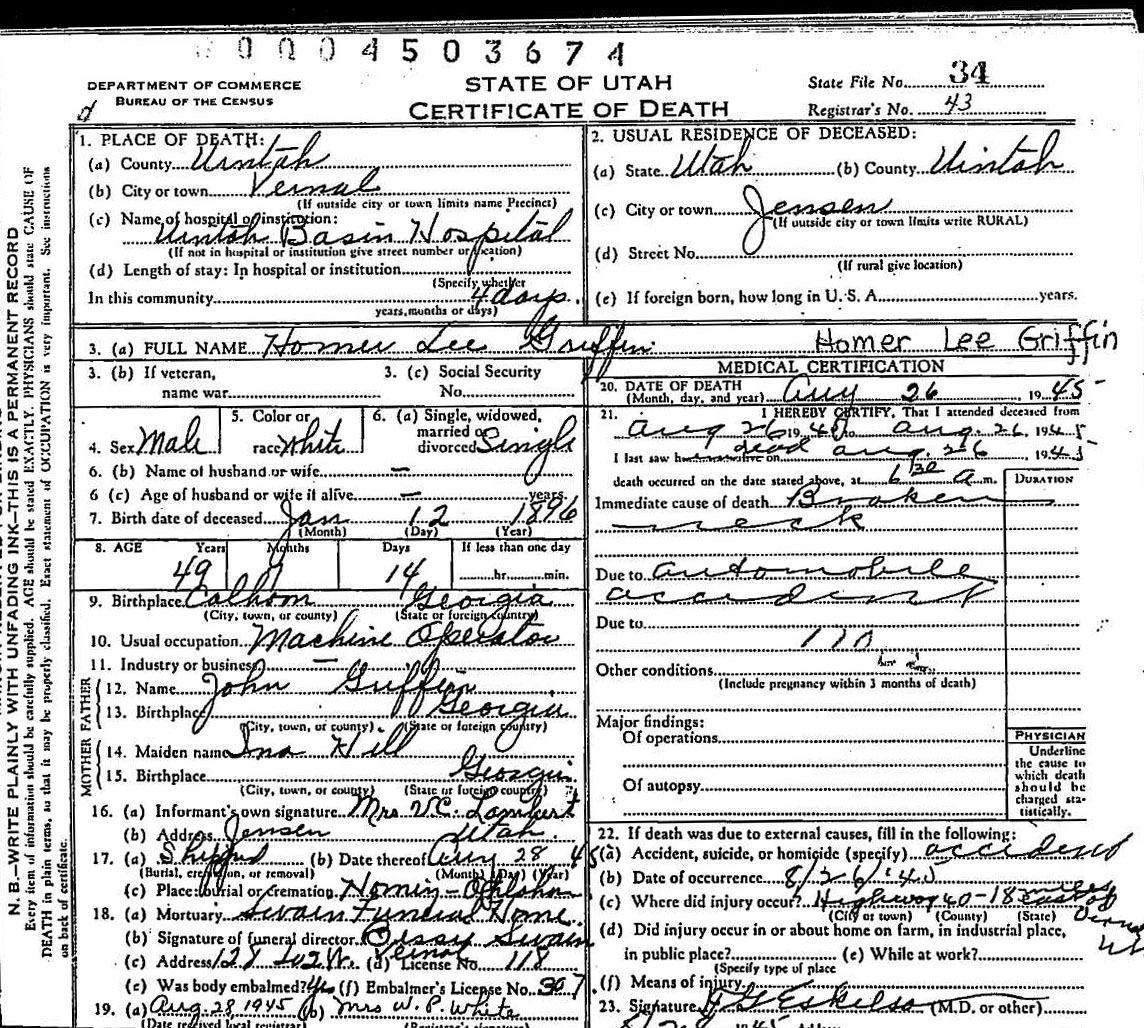 0004503674
DEPARTMENT OF COMMERCE
BUREAU OF THE CENSUS
STATE OF UTAH
CERTIFICATE OF DEATH
State File No. 34
Registrar's No. 43
N. B.—WRITE PLAINLY WITH UNFADING INK—THIS IS A PERMANENT RECORD
Every item of information should be carefully supplied. AGE should be stated EXACTLY. PHYSICIANS should state CAUSE OF
DEATH in plain terms, so that it may be properly classified. Exact statement of OCCUPATION is very important. See instructions
on back of certificate.
1. PLACE OF DEATH:
(a) County Uintah
(b) City or town Vernal
(If outside city or town limits name Precinct)
(c) Name of hospital or institution:
Uintah Basin Hospital
(If not in hospital or institution give street number or location)
(d) Length of stay: In hospital or institution
(Specify whether
In this community 4 days.
years, months or days)
2. USUAL RESIDENCE OF DECEASED:
(a) State Utah (b) County Uintah
(c) City or town Jensen
(If outside city or town limits write RURAL)
(d) Street No.
(If rural give location)
(e) If foreign born, how long in U. S. A. years.
3. (a) FULL NAME Homer Lee Griffin Homer Lee Griffin
3. (b) If veteran, 3. (c) Social Security
name war No.
4. Sex Male 5. Color or race White 6. (a) Single, widowed, married or divorced Single
6. (b) Name of husband or wife —
6 (c) Age of husband or wife if alive — years.
7. Birth date of deceased Jan 12 1896
(Month) (Day) (Year)
8. AGE Years Months Days If less than one day
49 7 14 hr. min.
9. Birthplace Calhoun Georgia
(City, town, or county) (State or foreign country)
10. Usual occupation Machine Operator
11. Industry or business —
FATHER
12. Name John Griffin
13. Birthplace Georgia
(City, town, or county) (State or foreign country)
MOTHER
14. Maiden name Ina Hill
15. Birthplace Georgia
(City, town, or county) (State or foreign country)
16. (a) Informant's own signature Mrs. V.C. Lambert
(b) Address Jensen Utah.
17. (a) Shipped (b) Date thereof Aug 28 45
(Burial, cremation, or removal) (Month) (Day) (Year)
(c) Place: burial or cremation Homin - Oklahoma
18. (a) Mortuary Swain Funeral Home.
(b) Signature of funeral director Swain
(c) Address 128 So 2 W. Vernal (d) License No. 118
(e) Was body embalmed? Yes (f) Embalmer's License No. 307
19. (a) Aug. 28 1945 (b) Mrs W. P. White
(Date received local registrar) (Registrar's signature)
MEDICAL CERTIFICATION
20. DATE OF DEATH
(Month, day, and year) Aug 26 1945
21. I HEREBY CERTIFY, That I attended deceased from
Aug 26 1945 to Aug. 26, 1945
I last saw h dead alive on Aug. 26 1945
death occurred on the date stated above, at 6 30 A m.
DURATION
Immediate cause of death Broken
neck
Due to automobile
accident
Due to
170
Other conditions
(Include pregnancy within 3 months of death)
Major findings:
Of operations
Of autopsy
PHYSICIAN
Underline
the cause to
which death
should be
charged sta-
tistically.
22. If death was due to external causes, fill in the following:
(a) Accident, suicide, or homicide (specify) accident
(b) Date of occurrence 8/26/45
(c) Where did injury occur? Highway 40 - 18 miles east of Vernal Ut
(City or town) (County) (State)
(d) Did injury occur in or about home on farm, in industrial place,
in public place? (e) While at work?
(Specify type of place
(f) Means of injury
23. Signature (M.D. or other)
1945 Address